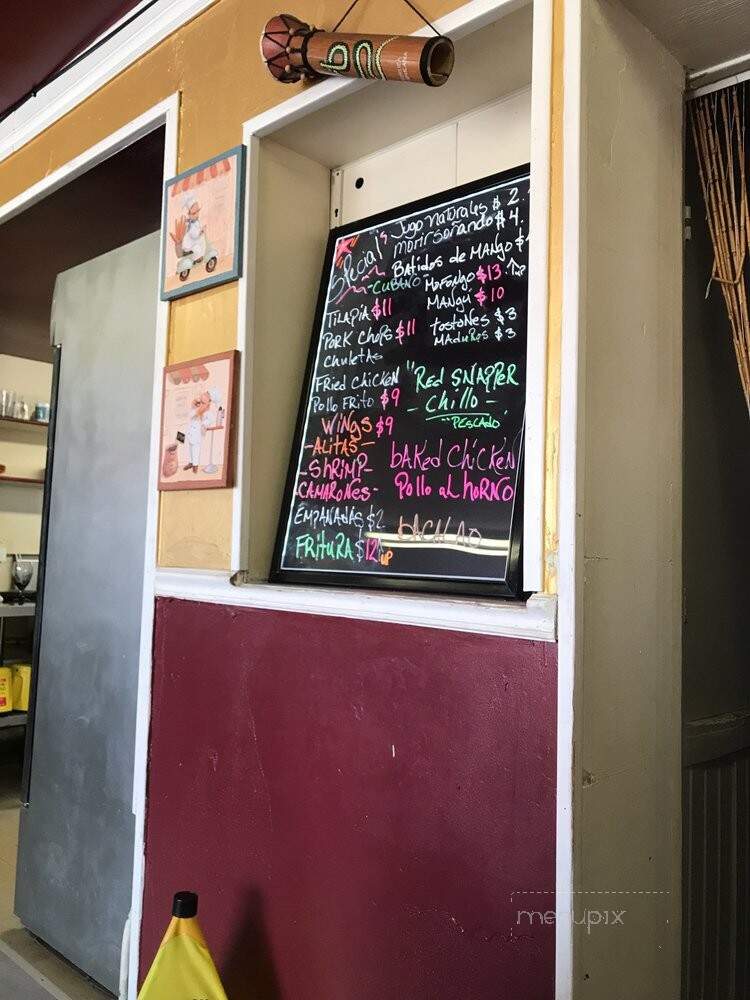 Special's
Jugo naturales $ 2.
morir soñando $ 4.
Batidos de MANgo $
CUBANO MOFONgo $13 up
MANgu $10
tostones $3
MADuros $3
TILAPIA $11
PORK Chops $11
Chuletas
Fried Chicken
Pollo Frito $9
WiNgs $9
-ALITAS-
-ShRIMP-
-CAMARONES-
EMPANADAS $2
FRituRA $12 up
"Red SNAPPER
- Chillo -
"PESCADO"
bAKed ChicKeN
Pollo aL hORNO
bACALAO
menupix